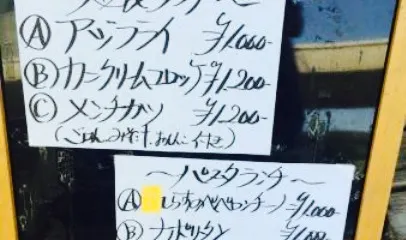 Ⓐ アジフライ ¥1.000-
Ⓑ カニクリームコロッケ ¥1.200-
Ⓒ メンチカツ ¥1.200-
(ごはん、みそ汁、おしんこ付き)
〜パスタランチ〜
Ⓐ しらすのペペロンチーノ ¥1.000-
Ⓑ ナポリタン